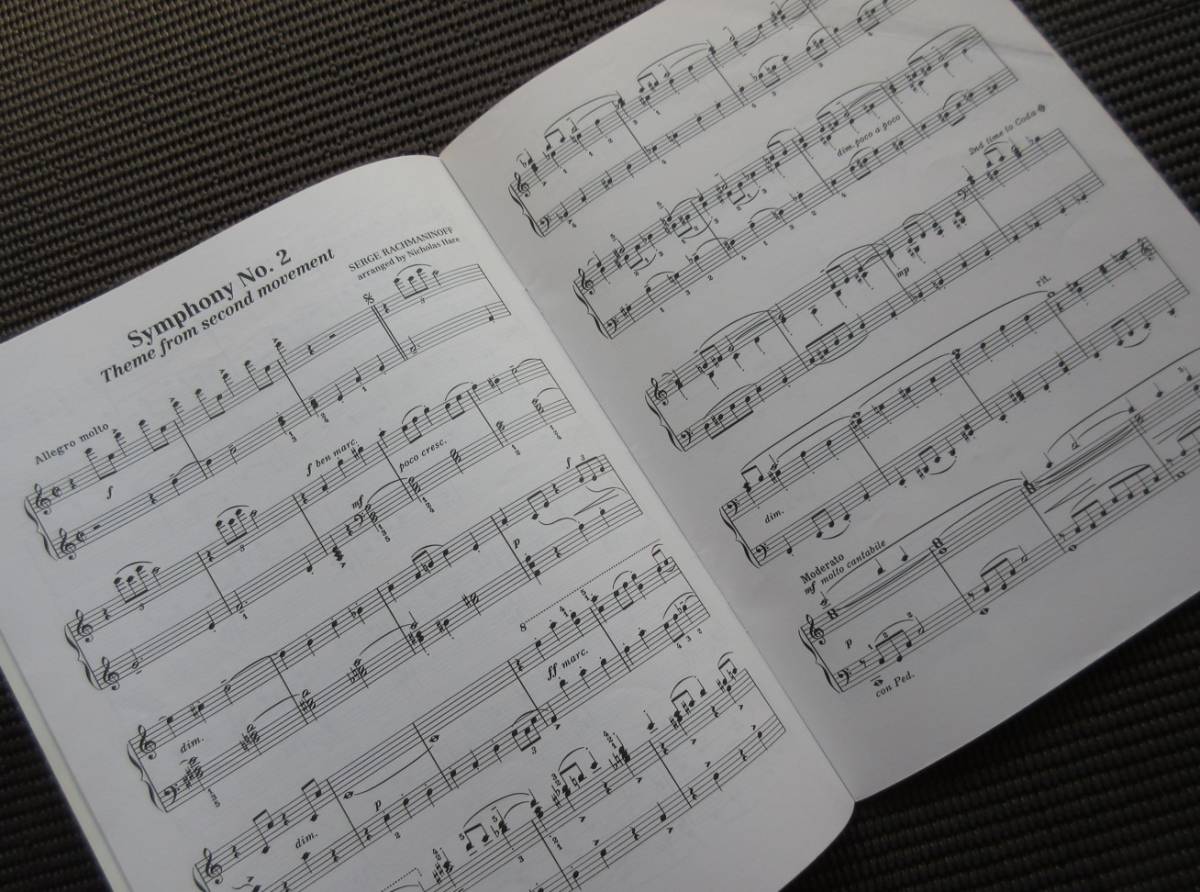 Symphony No. 2
Theme from second movement
SERGE RACHMANINOFF
arranged by Nicholas Hare
Allegro molto
f
f ben marc.
mf
poco cresc.
dim.
p
f
8
ff marc.
dim.
p
dim. poco a poco
2nd time to Coda
mp
rit.
dim.
Moderato
mf molto cantabile
p
con Ped.